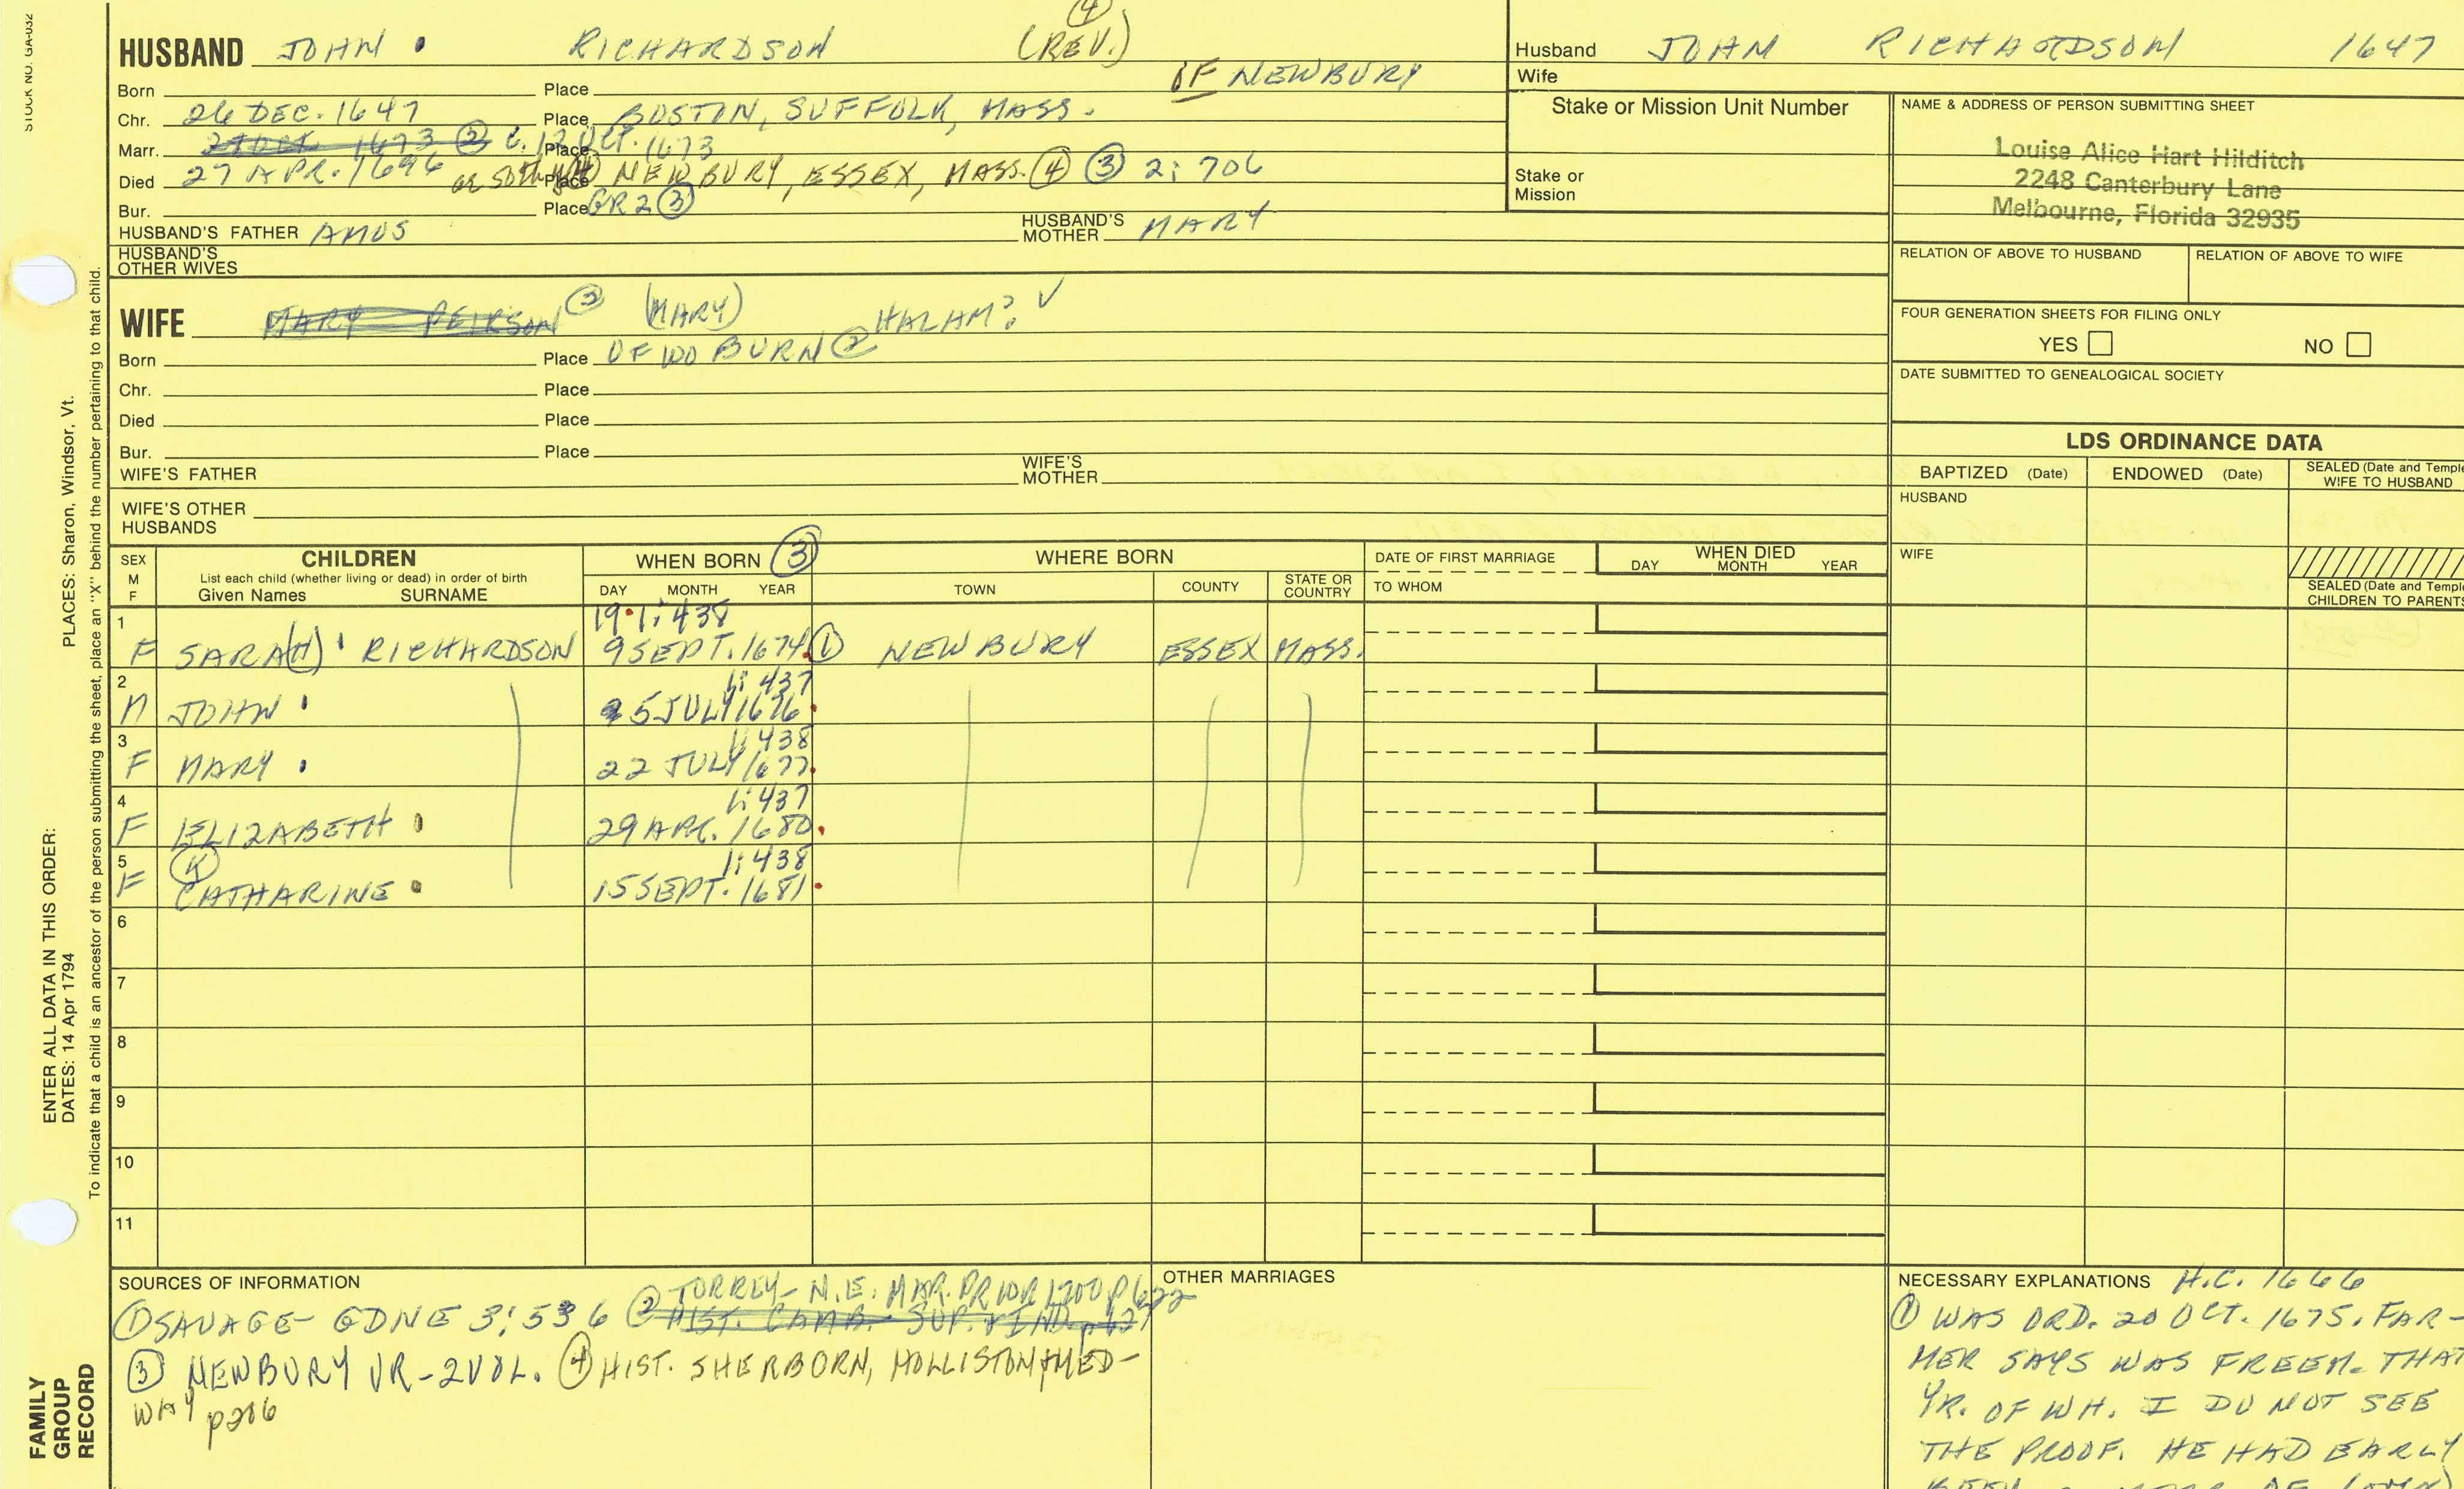 STOCK NO. GA-032
HUSBAND JOHN RICHARDSON (REV.) ④
OF NEWBURY
Born Place
Chr. 26 DEC. 1647 Place BOSTON, SUFFOLK, MASS.
Marr. 1673 ② C. 12 OCT. 1673 Place
Died 27 APR. 1696 Place NEWBURY, ESSEX, MASS. ④ ③ 2: 706
Bur. Place GR2 ③
HUSBAND'S FATHER AMOS HUSBAND'S MOTHER MARY
HUSBAND'S OTHER WIVES
WIFE MARY PEIRSON ② (MARY) HALAM? ✓
Born Place OF WOBURN ②
Chr. Place
Died Place
Bur. Place
WIFE'S FATHER WIFE'S MOTHER
WIFE'S OTHER HUSBANDS
Husband JOHN RICHARDSON 1647
Wife
Stake or Mission Unit Number
Stake or Mission
NAME & ADDRESS OF PERSON SUBMITTING SHEET
Louise Alice Hart Hilditch
2248 Canterbury Lane
Melbourne, Florida 32935
RELATION OF ABOVE TO HUSBAND RELATION OF ABOVE TO WIFE
FOUR GENERATION SHEETS FOR FILING ONLY
YES NO
DATE SUBMITTED TO GENEALOGICAL SOCIETY
LDS ORDINANCE DATA
BAPTIZED (Date) ENDOWED (Date) SEALED (Date and Temple) WIFE TO HUSBAND
HUSBAND
WIFE
SEALED (Date and Temple) CHILDREN TO PARENTS
SEX M F
CHILDREN
List each child (whether living or dead) in order of birth
Given Names SURNAME
WHEN BORN ③
DAY MONTH YEAR
WHERE BORN
TOWN COUNTY STATE OR COUNTRY
DATE OF FIRST MARRIAGE
TO WHOM
WHEN DIED
DAY MONTH YEAR
1 19. 1: 438
F SARA(H) RICHARDSON 9 SEPT. 1674 ① NEWBURY ESSEX MASS.
2 1: 437
M JOHN 5 JULY 1676
3 1: 438
F MARY 22 JULY 1677
4 1: 437
F ELIZABETH 29 APR. 1680
5 (K) 1: 438
F CATHARINE 15 SEPT. 1681
6
7
8
9
10
11
SOURCES OF INFORMATION
① SAVAGE- GDNE 3: 536 ② TORREY- N.E. MAR. PRIOR 1700 p622
HIST. CAMB. SUP. & IND. p627
③ NEWBURY VR-2 VOL. ④ HIST. SHERBORN, HOLLISTON & MED-
WAY p216
OTHER MARRIAGES
NECESSARY EXPLANATIONS H.C. 1666
① WAS ORD. 20 OCT. 1675. FAR-
MER SAYS WAS FREEM. THAT
YR. OF WH. I DO NOT SEE
THE PROOF. HE HAD EARLY
ENTER ALL DATA IN THIS ORDER:
DATES: 14 Apr 1794
PLACES: Sharon, Windsor, Vt.
To indicate that a child is an ancestor of the person submitting the sheet, place an "X" behind the number pertaining to that child.
FAMILY
GROUP
RECORD